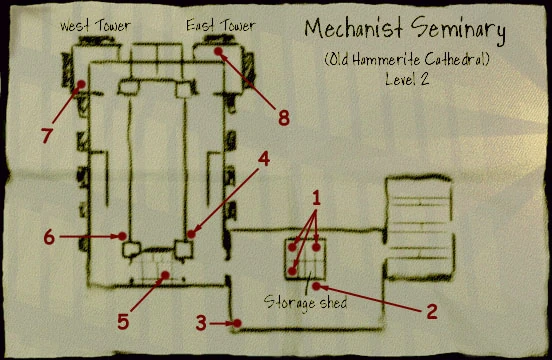 West Tower
East Tower
Mechanist Seminary
(Old Hammerite Cathedral)
Level 2
7
8
4
1
6
5
3
Storage shed
2